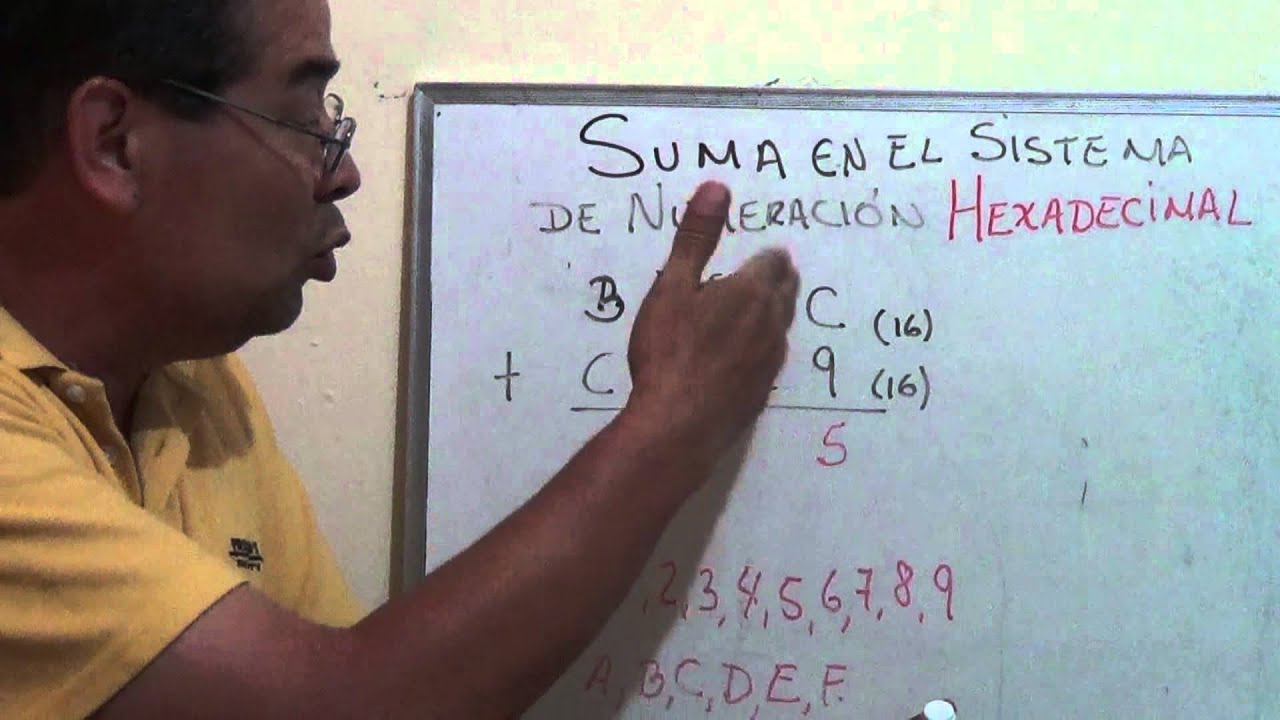 SUMA EN EL SISTEMA
DE NUMERACIÓN HEXADECIMAL
B C (16)
+ C 9 (16)
5
,2,3,4,5,6,7,8,9
A,B,C,D,E,F.